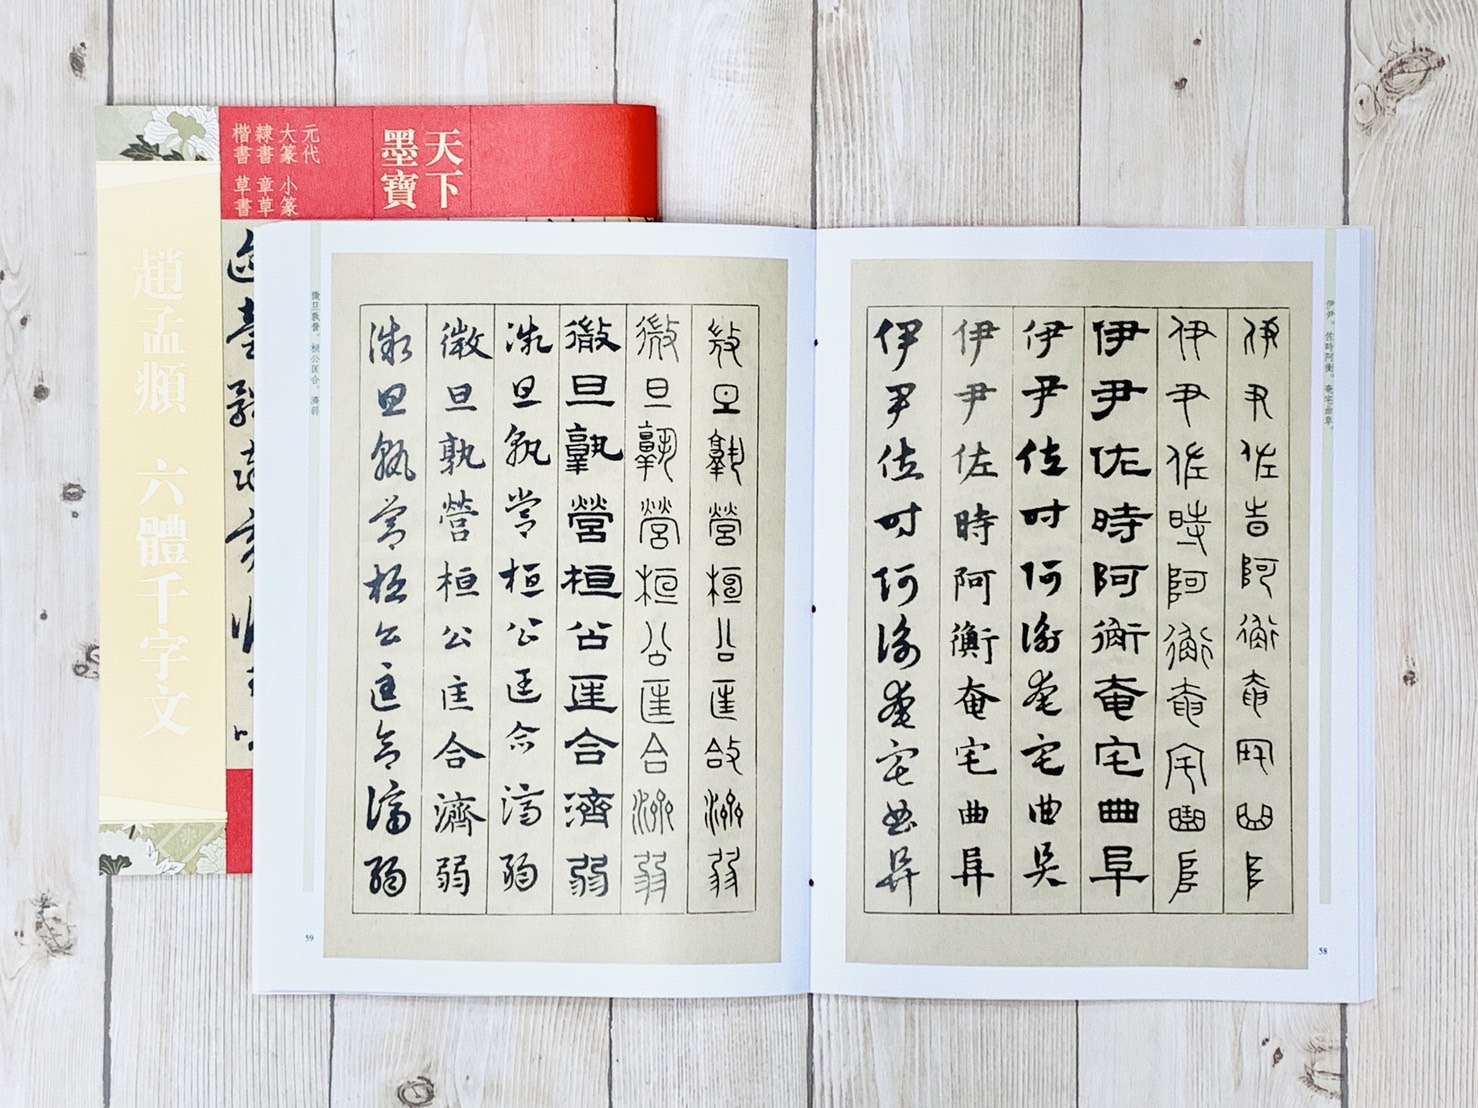 天下
墨寶
元代
大篆 小篆
隸書 章草
楷書 草書
趙孟頫 六體千字文
伊尹。佐時阿衡。奄宅曲阜。
伊尹佐時阿衡奄宅曲阜
伊尹佐時阿衡奄宅曲阜
伊尹佐時阿衡奄宅曲阜
伊尹佐時阿衡奄宅曲阜
伊尹佐時阿衡奄宅曲阜
伊尹佐時阿衡奄宅曲阜
58
微旦孰營桓公匡合濟弱
微旦孰營桓公匡合濟弱
微旦孰營桓公匡合濟弱
微旦孰營桓公匡合濟弱
微旦孰營桓公匡合濟弱
微旦孰營桓公匡合濟弱
微旦孰營。桓公匡合。濟弱
59